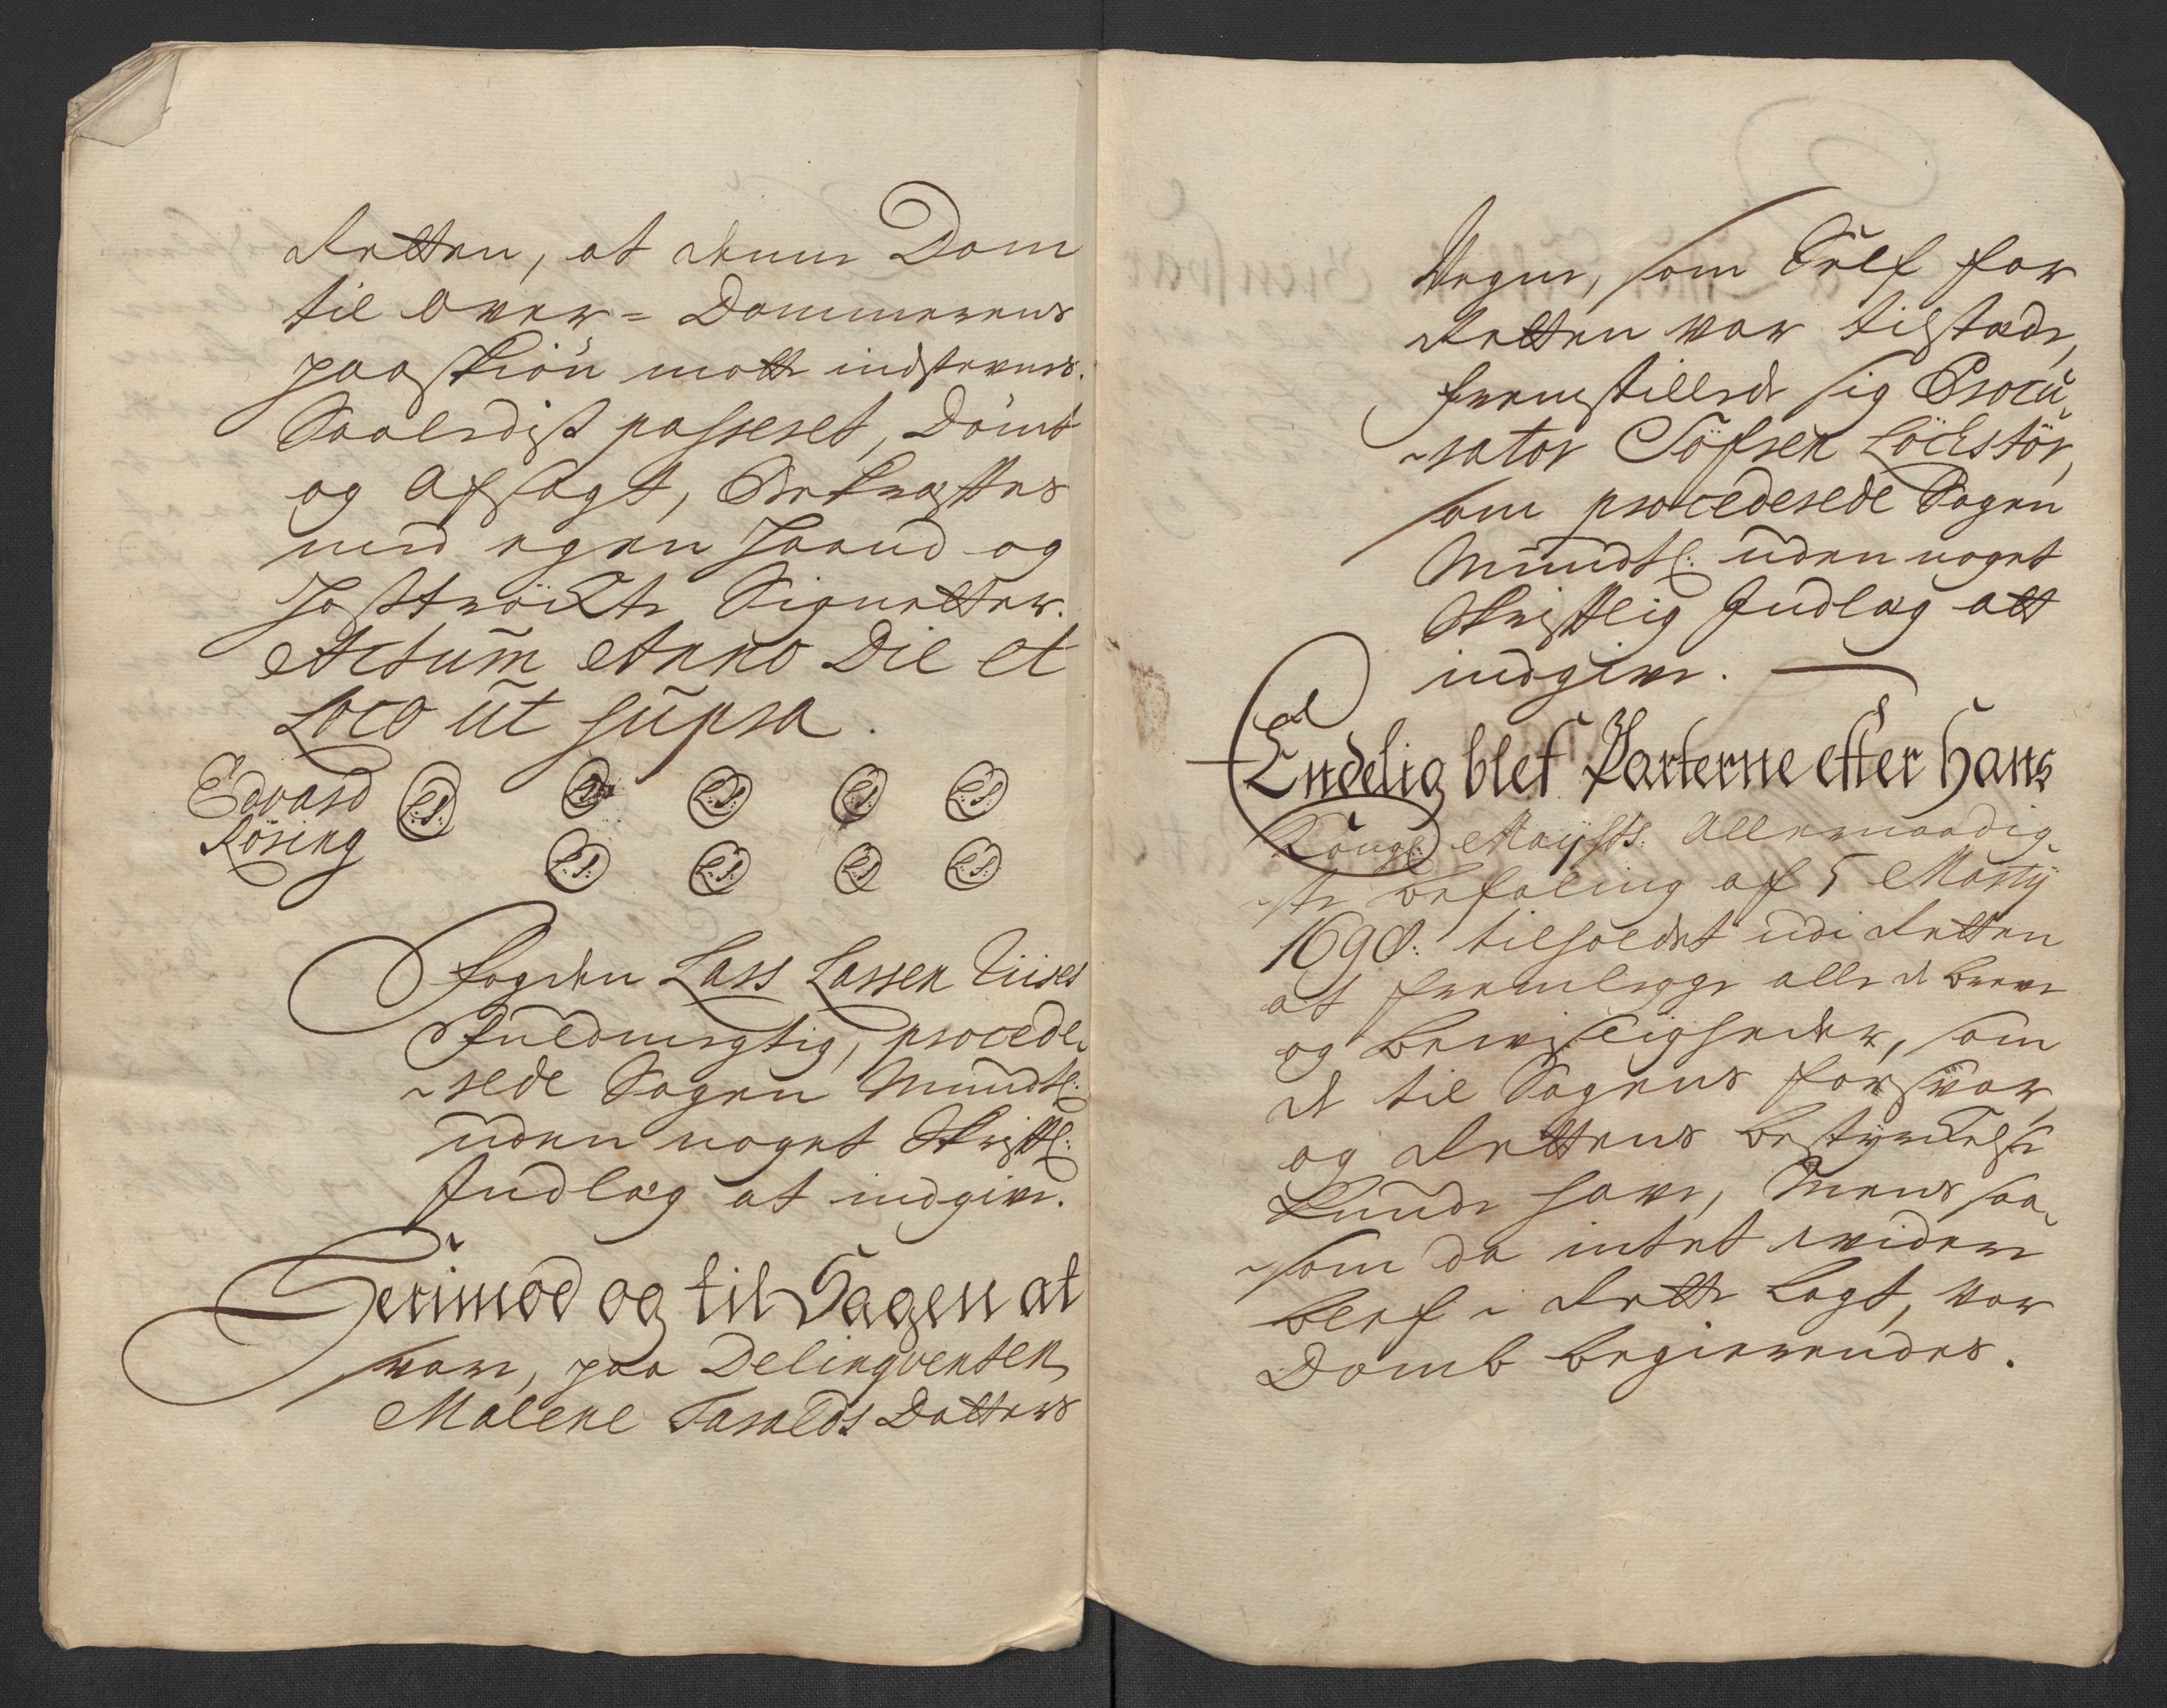 Retten, at denne Dom
til Over= Dommerens
paaskiøn motte indstevnes.
Saaledist passeret, Dömt
og Afsagt, Bekræfftes
med egen Haand og
Hoströckte Signetter.
Actum Anno Die et
Loco ut supra.
Edvard
Rösing
L.S. L.S. L.S. L.S. L.S.
L.S. L.S. L.S. L.S.
Fogden Lars Larsen
Fuldmegtig, procede-
-rede Sagen Mundtl:
uden noget Skrifftl:
Indlæg at indgive.
Herimod og til Sagen at
svare, paa Delinqventen
Malene Taralds Datters
Vegne, som Self for
Retten var tilstæde,
fremstillede sig Procu-
-rator Töfren Löchstör,
som procederede Sagen
Mundtl: uden noget
Skrifftlig Indlæg att
indgive.
Endelig blef Parterne efter Hans
Kongl: Maysts: Allernaadig-
-ste befaling af 5 Martij
1690: tilholdet udi Retten
at fremlegge alle de breve
og beviisligheder, som
de til Sagens forsvar,
og Rettens bestyrckelse
kunde have, Mens saa-
-som da intet videre
blef i Rette lagt, var
Domb begierendes.